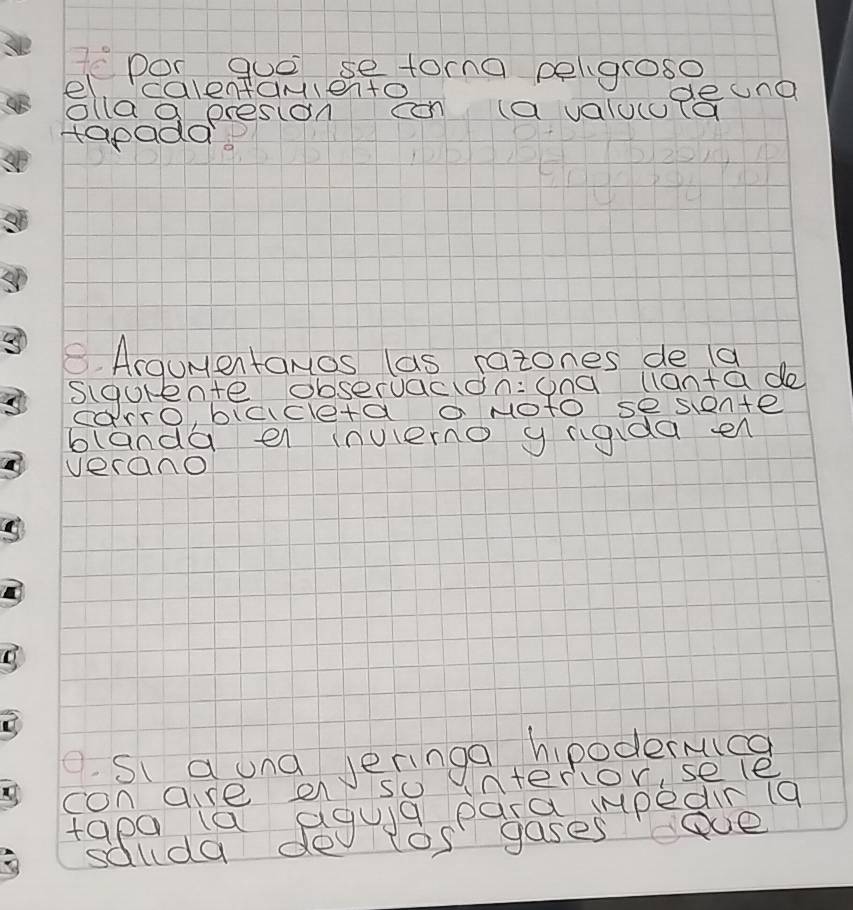 7¿ por qué se torna peligroso
el calentamiento de una
olla a presion con la valvula
tapada?
8. Argumentamos las razones de la
siguiente observación: una llanta de
carro, bicicleta o moto se siente
blanda en invierno y rigida en
verano
9. Si a una jeringa hipodermica
con aire en su interior, se le
tapa la aguja para impedir la
salida de los gases Que